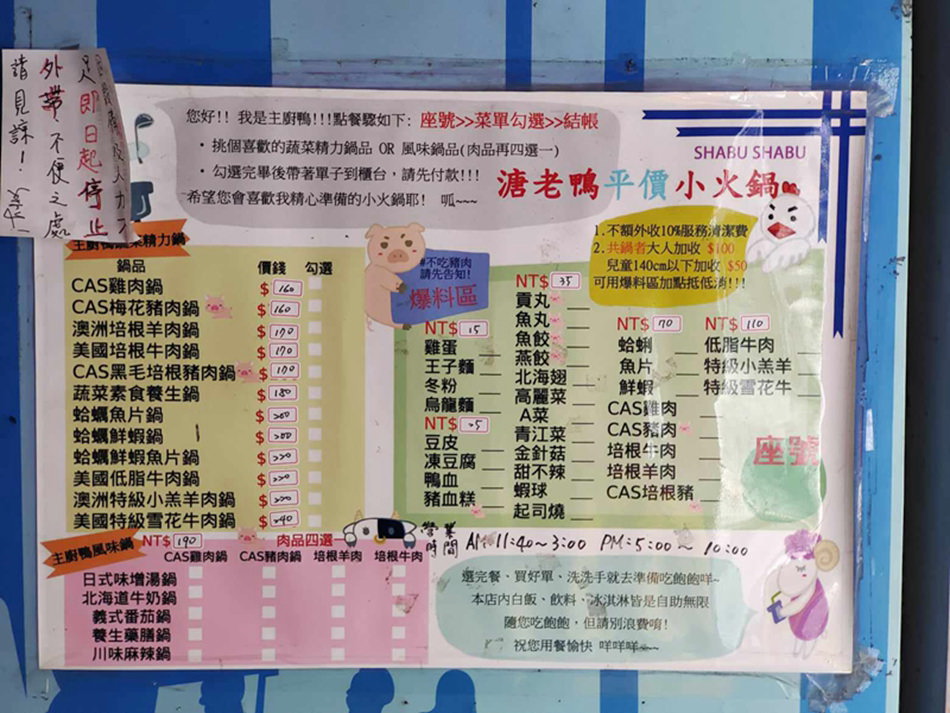 即日起停止
外帶、不便之處
請見諒!
您好!! 我是主廚鴨!!!點餐驟如下: 座號>>菜單勾選>>結帳
・挑個喜歡的蔬菜精力鍋品 OR 風味鍋品(肉品再四選一)
・勾選完畢後帶著單子到櫃台,請先付款!!!
希望您會喜歡我精心準備的小火鍋耶! 呱~~~
SHABU SHABU
溏老鴨平價小火鍋
1.不額外收10%服務清潔費
2.共鍋者大人加收 $100
兒童140cm以下加收 $50
可用爆料區加點抵低消!!!
主廚鴨蔬菜精力鍋
鍋品 價錢 勾選
CAS雞肉鍋 $160
CAS梅花豬肉鍋 $160
澳洲培根羊肉鍋 $170
美國培根牛肉鍋 $170
CAS黑毛培根豬肉鍋 $170
蔬菜素食養生鍋 $180
蛤蠣魚片鍋 $200
蛤蠣鮮蝦鍋 $200
蛤蠣鮮蝦魚片鍋 $220
美國低脂牛肉鍋 $220
澳洲特級小羔羊肉鍋 $220
美國特級雪花牛肉鍋 $240
#不吃豬肉
請先告知!
爆料區
NT$ 15
雞蛋
王子麵
冬粉
烏龍麵
NT$ 25
豆皮
凍豆腐
鴨血
豬血糕
NT$ 35
貢丸
魚丸
魚餃
燕餃
北海翅
高麗菜
A菜
青江菜
金針菇
甜不辣
蝦球
起司燒
NT$ 70
蛤蜊
魚片
鮮蝦
CAS雞肉
CAS豬肉
培根牛肉
培根羊肉
CAS培根豬
NT$ 110
低脂牛肉
特級小羔羊
特級雪花牛
座號
主廚鴨風味鍋
NT$ 190 肉品四選
CAS雞肉鍋 CAS豬肉鍋 培根羊肉 培根牛肉
日式味增湯鍋
北海道牛奶鍋
義式番茄鍋
養生藥膳鍋
川味麻辣鍋
營業時間 AM:11:40~3:00 PM:5:00~10:00
選完餐、買好單、洗洗手就去準備吃飽飽咩~
本店內白飯、飲料、冰淇淋皆是自助無限
隨您吃飽飽,但請別浪費唷!
祝您用餐愉快 咩咩咩~~~